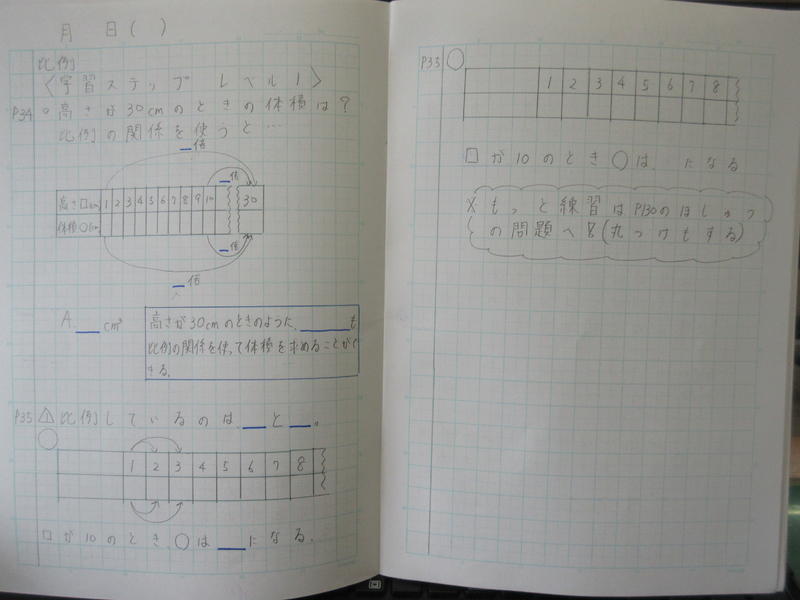 月 日( )
比例
〈学習ステップ レベル1〉
P34 ○ 高さが30cmのときの体積は?
比例の関係を使うと…
倍
倍
高さ□cm 1 2 3 4 5 6 7 8 9 10 30
体積○cm³
倍
倍
A. cm³
高さが30cmのときのように、 も
比例の関係を使って体積を求めることがで
きる。
P35 1 比例しているのは と 。
1 2 3 4 5 6 7 8
□が10のとき、○は になる。
P35
1 2 3 4 5 6 7 8
□が10のとき○は になる
もっと練習はP130のほじゅう
の問題へ (丸つけもする)